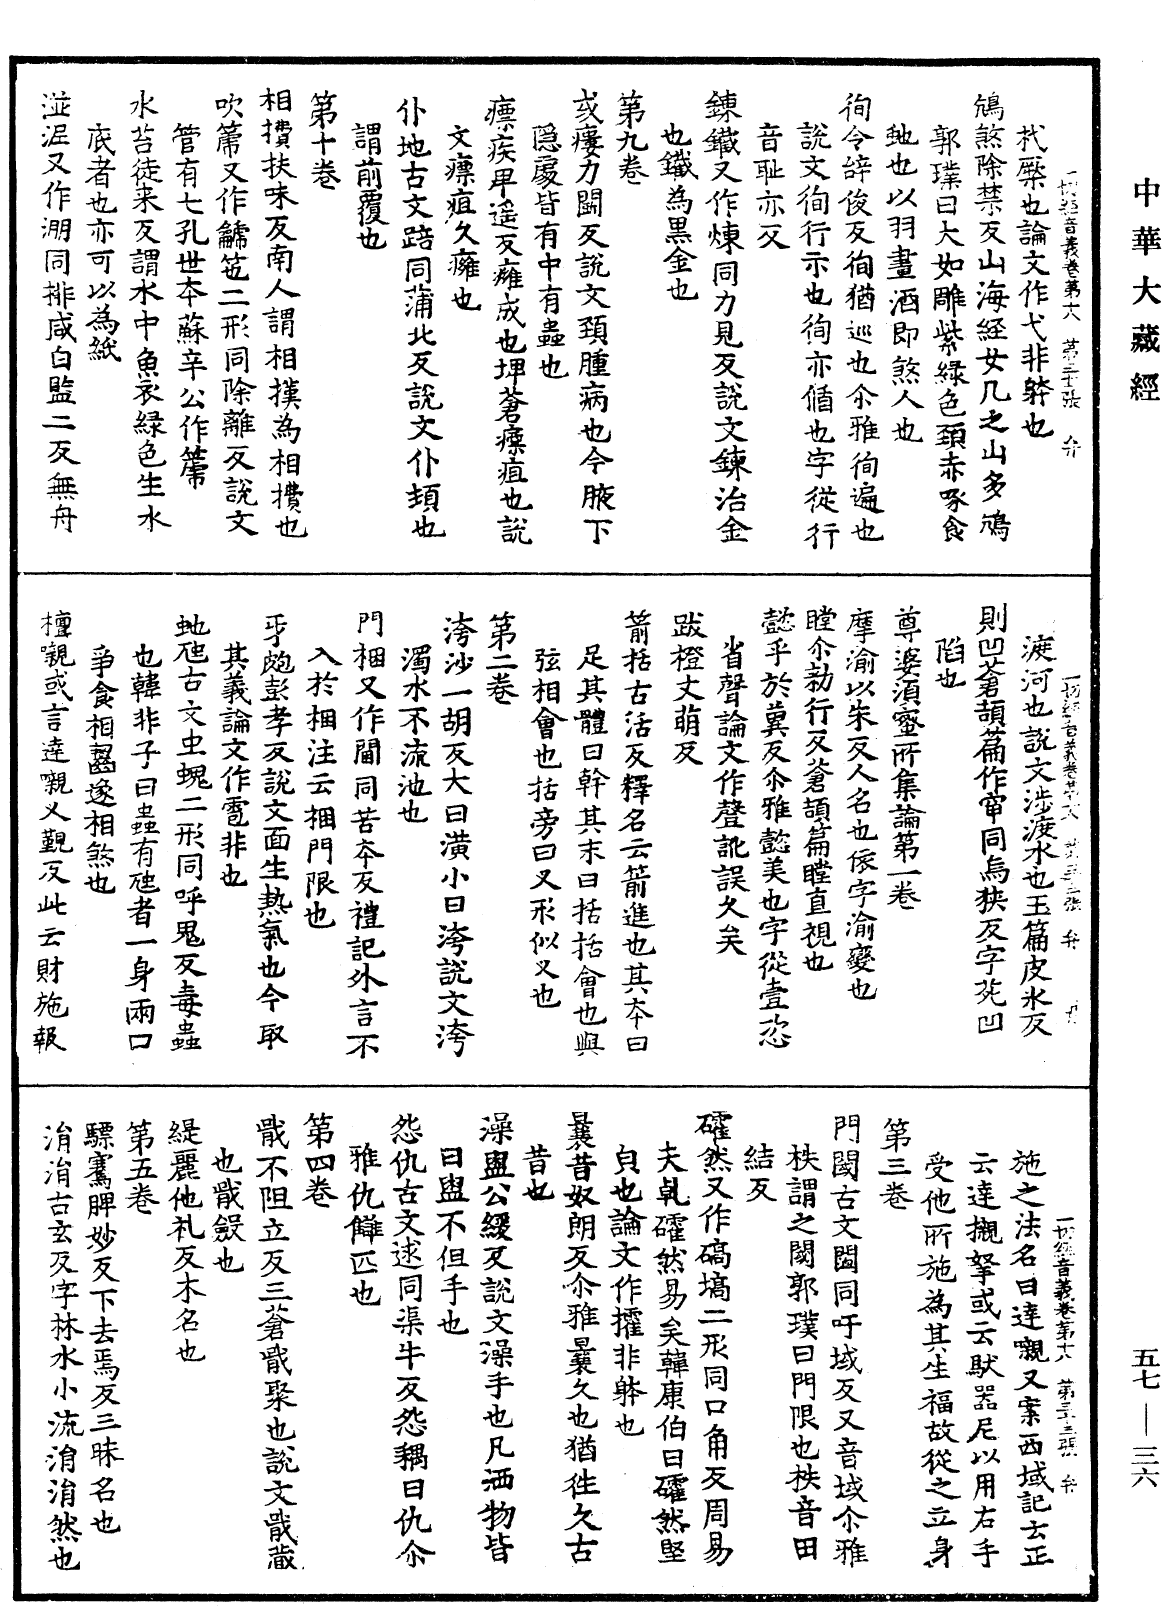 中華大藏經
一切經音義卷第十八　第三十一張　弁
杙橜也論文作弋非䠶也
鴆煞除禁反山海經女几之山多鴆
郭璞曰大如雕紫綠色頸赤喙食
虵也以羽畫酒即煞人也
徇令辝俊反徇猶巡也尒雅徇遍也
說文徇行示也徇亦循也字從行
音耻亦反
鍊鐵又作煉同力見反說文鍊治金
也鐵為黑金也
第九卷
或瘻力鬪反說文頸腫病也今腋下
隱處皆有中有蟲也
瘭疾卑遙反癰成也埤蒼瘭疽也說
文瘭疽久癰也
仆地古文踣同蒲北反說文仆頓也
謂前覆也
第十卷
相㩌扶味反南人謂相撲為相㩌也
吹箎又作鷈竾二形同除離反說文
管有七孔世本蘇辛公作箎
水苔徒来反謂水中魚衣綠色生水
底者也亦可以為紙
湴浧又作淜同排咸白監二反無舟
一切經音義卷第十八　第三十二張　弁
渡河也說文涉渡水也玉篇皮氷反
則凹蒼頡篇作窅同烏狹反字苑凹
陷也
尊婆須蜜所集論第一卷
摩渝以朱反人名也依字渝變也
瞠尒勑行反蒼頡篇瞠直視也
懿乎於冀反尒雅懿美也字從壹恣
省聲論文作聲訛誤久矣
跋橙丈萌反
箭括古活反釋名云箭進也其本曰
足其體曰幹其末曰括括會也與
弦相會也括旁曰叉形似叉也
第二卷
洿沙一胡反大曰潢小曰洿說文洿
濁水不流池也
門梱又作閫同苦本反禮記外言不
入於梱注云梱門限也
牙皰彭孝反說文面生熱氣也今取
其義論文作雹非也
虵虺古文虫螝二形同呼鬼反毒蟲
也韓非子曰蟲有虺者一身兩口
爭食相齧遂相煞也
檀嚫或言達嚫义覲反此云財施報
一切經音義卷第十八　第三十三張　弁
施之法名曰達嚫又案西域記云正
云達櫬拏或云馱器尼以用右手
受他所施為其生福故從之立身
第三卷
門閾古文閾同吁域反又音域尒雅
柣謂之閾郭璞曰門限也柣音田
結反
礭然又作碻塙二形同口角反周易
夫乹礭然易矣韓康伯曰礭然堅
皃也論文作㩁非䠶也
曩昔奴朗反尒雅曩久也猶徃久古
昔也
澡盥公緩反說文澡手也凡洒物皆
曰盥不但手也
怨仇古文逑同渠牛反怨耦曰仇尒
雅仇讎匹也
第四卷
戢不阻立反三蒼戢聚也說文戢藏
也戢斂也
緹麗他礼反木名也
第五卷
驃騫脾妙反下去焉反三昧名也
涓涓古玄反字林水小流涓涓然也
五七—三六